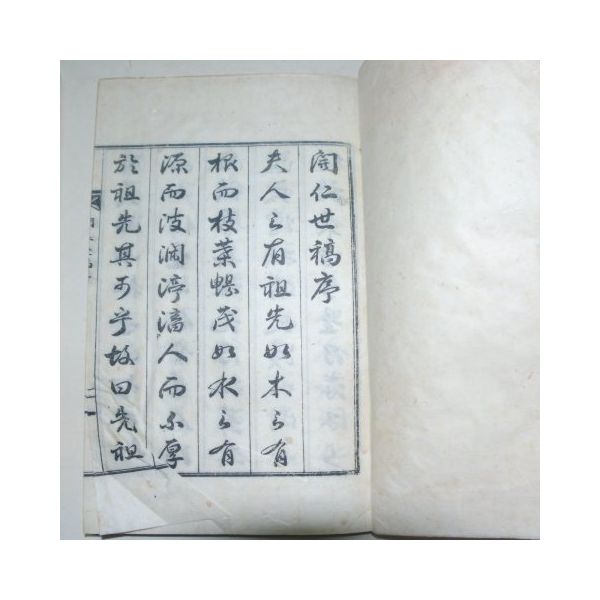 開仁世稿序
夫人之有祖先如木之有
根而枝葉暢茂如水之有
源而波瀾渟滀人而不厚
於祖先其可乎故曰先祖